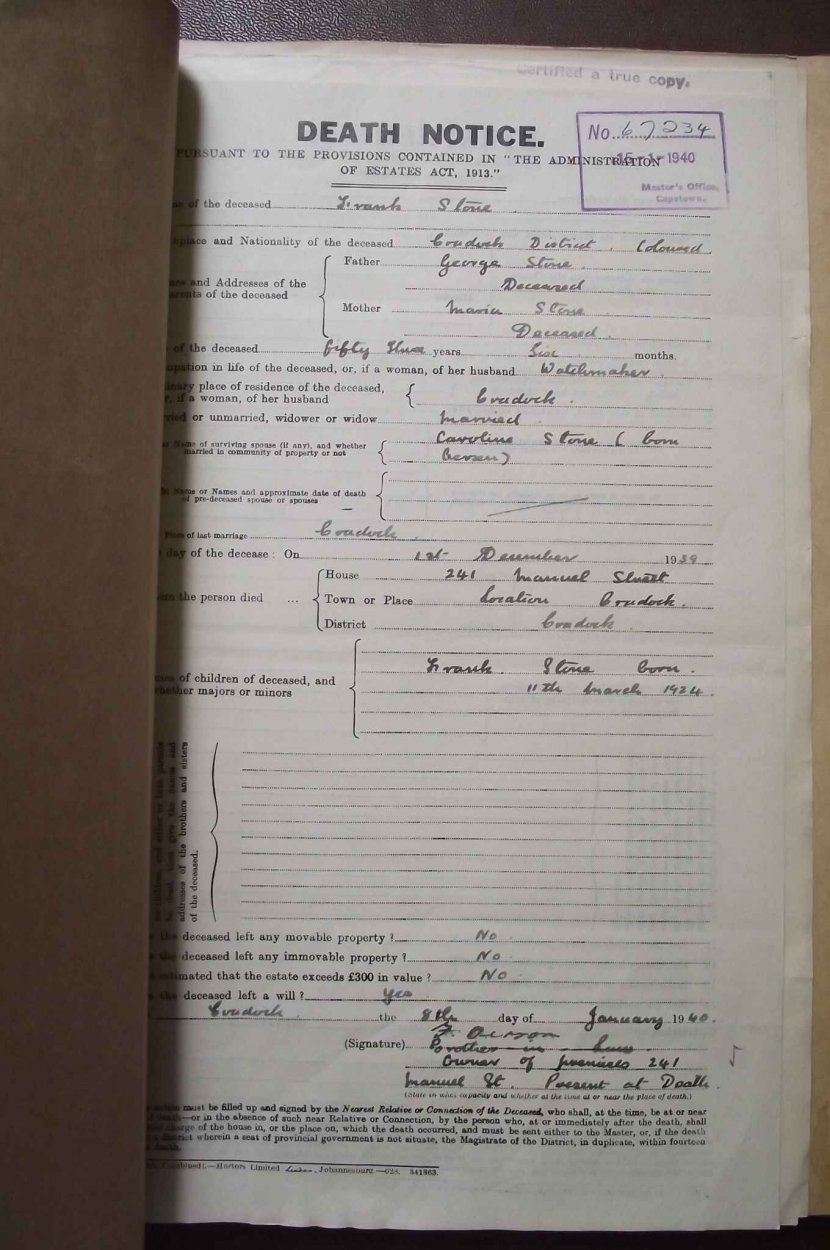 Certified a true copy.
DEATH NOTICE.
No. 67234
PURSUANT TO THE PROVISIONS CONTAINED IN "THE ADMINISTRATION
15-1-1940
OF ESTATES ACT, 1913."
Master's Office,
Capetown.
of the deceased Frank Stone
place and Nationality of the deceased Cradock District. Coloured.
Father George Stone.
and Addresses of the
Deceased
of the deceased
Mother Maria Stone
Deceased.
of the deceased Fifty Three years Six months.
in life of the deceased, or, if a woman, of her husband Watchmaker.
place of residence of the deceased,
if a woman, of her husband Cradock.
or unmarried, widower or widow married.
Name of surviving spouse (if any), and whether Caroline Stone (born
married in community of property or not
Name or Names and approximate date of death
of pre-deceased spouse or spouses
Place of last marriage Cradock.
day of the decease: On 1st December 1939
House 241 Manuel Street
the person died ... Town or Place Location Cradock.
District Cradock.
Frank Stone born.
of children of deceased, and
whether majors or minors 11th March 1924.
addresses of the brothers and sisters
of the deceased.
the deceased left any movable property? No
deceased left any immovable property? No
estimated that the estate exceeds £300 in value? No
the deceased left a will? Yes
Cradock. the 8th day of January 1940.
(Signature)
Brother in law
Owner of premises 241
Manuel St. Present at Death.
(State in what capacity and whether at the time at or near the place of death.)
must be filled up and signed by the Nearest Relative or Connection of the Deceased, who shall, at the time, be at or near
death—or in the absence of such near Relative or Connection, by the person who, at or immediately after the death, shall
charge of the house in, or the place on, which the death occurred, and must be sent either to the Master, or, if the death
wherein a seat of provincial government is not situate, the Magistrate of the District, in duplicate, within fourteen
death.
Combined).—Hortors Limited, Johannesburg.—628. 341863.